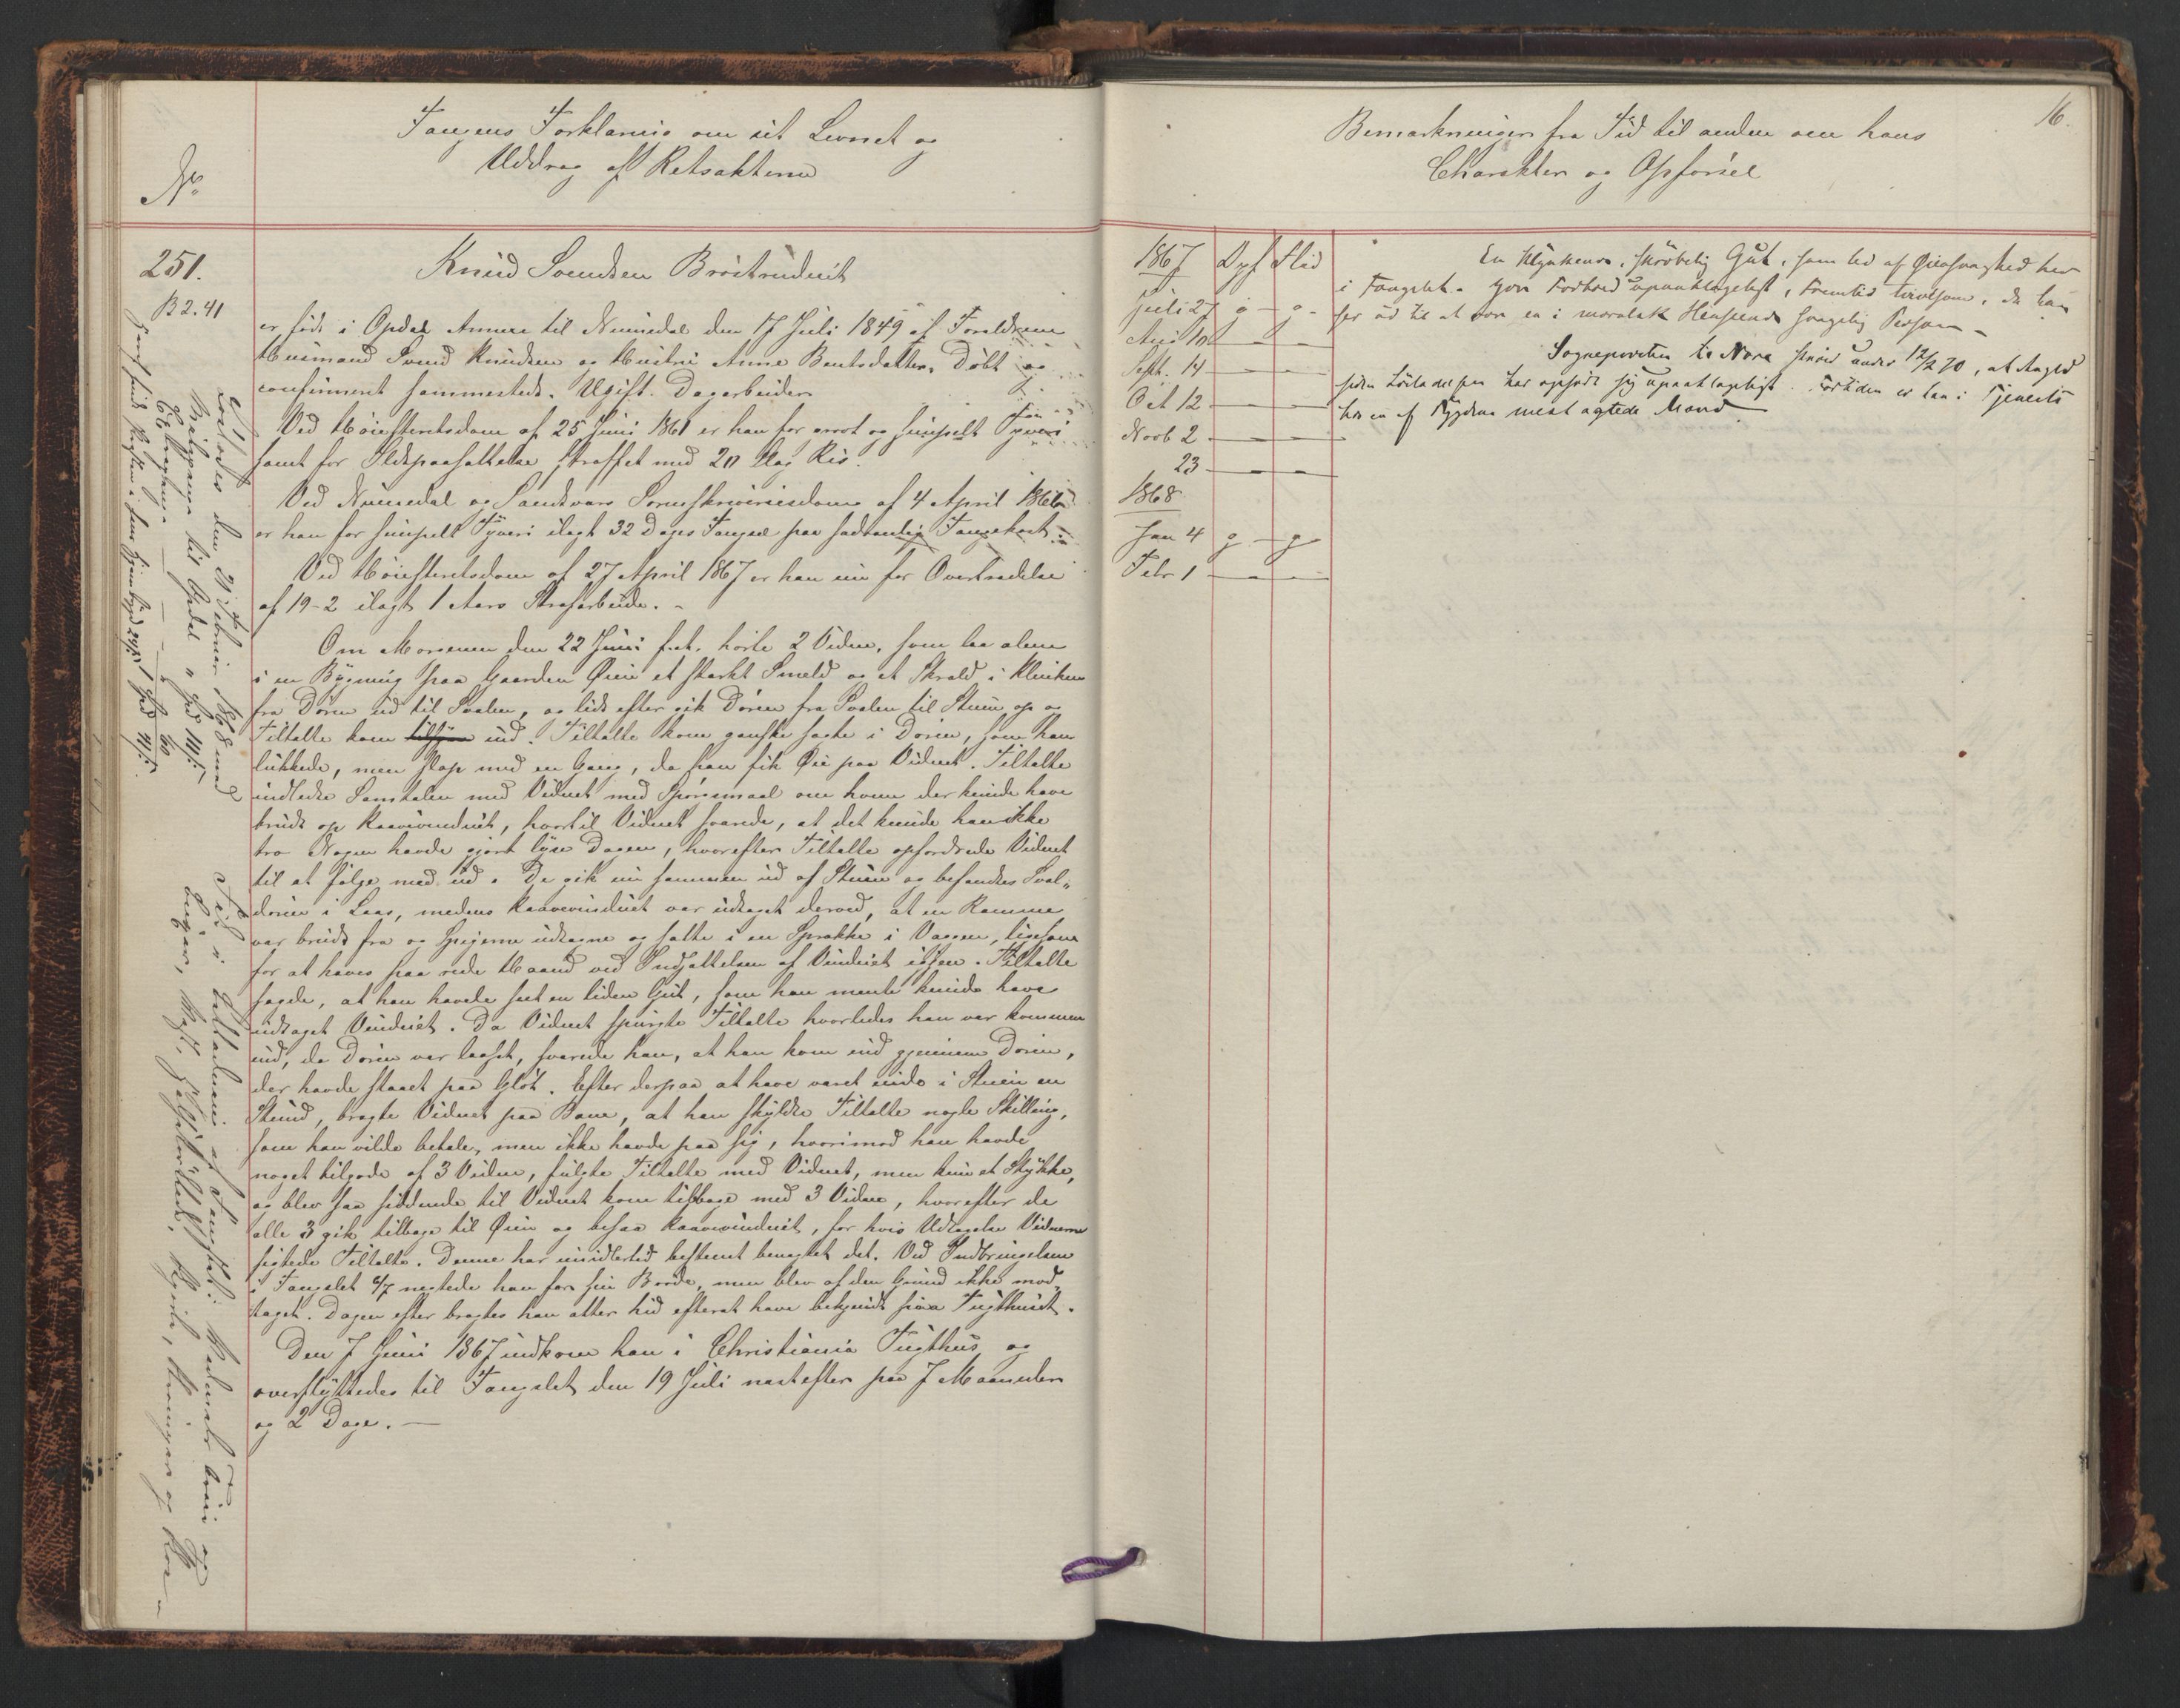 No
Fangens Forklaring om sit Levnet og
Uddrag af Retsakterne
251.
B 2.41
Knud Svendsen Bröstrudeiet
er född i Opdal Annex til Numedal den 17 Juli 1849 af Forældrene
Husmand Svend Knudsen og Hustru Anne Bentsdatter. Döbt og
confirmeret sammesteds. Ugift. Dagarbeider
Ved Høiesteretsdom af 25 Juni 1861 er han for grovt og simpelt Tyveri
samt for Ildspaasættelse straffet med 20 Slag Ris.
Ved Numedal og Sandsvær Sorenskriveriesdom af 4 April
er han for simpelt Tyveri ilagt 32 Dages Fængsel paa sædvanlig Fangekost.
Ved Høiesteretsdom af 27 April 1867 er han nu for Overtrædelse
af 19-2 ilagt 1 Aars Strafarbeide. -
Om Morgenen den 22 Juni f.A. hörte 2 Vidne, som laa alene
i en Bygning paa Gaarden Øien et stærkt Smeld og et Skrald i Klinken
fra Dören ud til Svalen, og lidt efter gik Dören fra Svalen til Stuen op og
Tiltalte kom ind. Tiltalte kom ganske sagte i Dören, som han
lukkede, men slap med en Gang, da han fik Øie paa Vidnet. Tiltalte
indledte Samtalen med Vidnet med Spörgsmaal om hvem der kunde have
brudt op Kaavevinduet, hvortil Vidnet svarede, at det kunde han ikke
tro Nogen havde gjort lyse Dagen, hvorefter Tiltalte opfordrede Vidnet
til at fölge med ud. De gik nu sammen ud af Stuen og befandtes Sval-
dören i Laas, medens Kaavevinduet var udtaget derved, at en Ramme
var brudt fra og Spigerne udtagne og satte i en Sprække i Væggen, ligesom
for at haves paa rede Haand ved Indsættelsen af Vinduet igjen. Tiltalte
sagde, at han havde seet en liden Gut, som han mente kunde have
udtaget Vinduet. Da Vidnet spurgte Tiltalte hvorledes han var kommen
ind, da Dören var laaset, svarede han, at han kom ind gjennem Dören,
der havde staaet paa Glöt. Efter derpaa at have været inde i Stuen en
Stund, bragte Vidnet paa Bane, at han skyldte Tiltalte nogle Skilling,
som han vilde betale, men ikke havde paa sig, hvorimod han havde
noget tilgode af 3 Vidne, fulgte Tiltalte med Vidnet, men kun et Stykke,
og blev saa siddende til Vidnet kom tilbage med 3 Vidne, hvorefter de
alle 3 gik tilbage til Øien og besaa Kaavevinduet, for hvis Udtagelse Vidnerne
sigtede Tiltalte. Denne har imidlertid bestemt benægtet det. Ved Indbringelsen
i Fængslet 4/7 negtede han for sin Bröde, men blev af den Grund ikke mod-
taget. Dagen efter bragtes han atter hid efterat have bekjendt paa Tugthuset.
Den 7 Juni 1867 indkom han i Christiania Tugthus og
overflyttedes til Fængslet den 19 Juli næstefter paa 7 Maaneder
og 2 Dage. —
Löslodes den 21 Februar 1868 med
Reisepenge til Opdal
Hans sidste i hans Hjembygd
Fik i ved Löslatelsen af Fængslet:
Buxer, Vest,
16.
Bemærkninger fra Tid til anden om hans
Charakter og Opförsel
1867 Opf Flid
Juli 27 g - g -
Aug 10 — —
Septb. 14 — —
Oct 12 — —
Novb 2 — —
23 — —
1868
Jan 4 g - g
Febr 1 — —
En klynkende, skröbelig Gut, som led af Øiensvaghed her
i Fængslet. Hans Forhold upaaklageligt, Fremtid tvivlsom, da han
ser ud til at være en i moralsk Henseende svagelig Person -
Sognepresten til Nore skriver under 12/2 70, at Angjeld.
siden Lösladelsen har opfört sig upaaklageligt. Fortiden er han i Tjeneste
hos en af Bygdens mest agtede Mænd